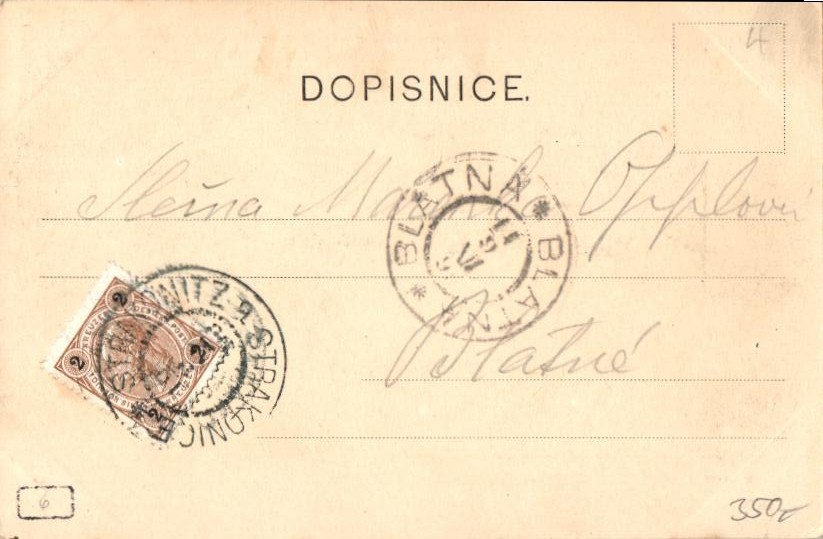 4
DOPISNICE.
Slečna Mařenka Opplová
BLATNÁ * BLATNA *
11
Blatné
STRAKONITZ 2 * STRAKONICE
2 KREUZER 2
2
2
6
350,-